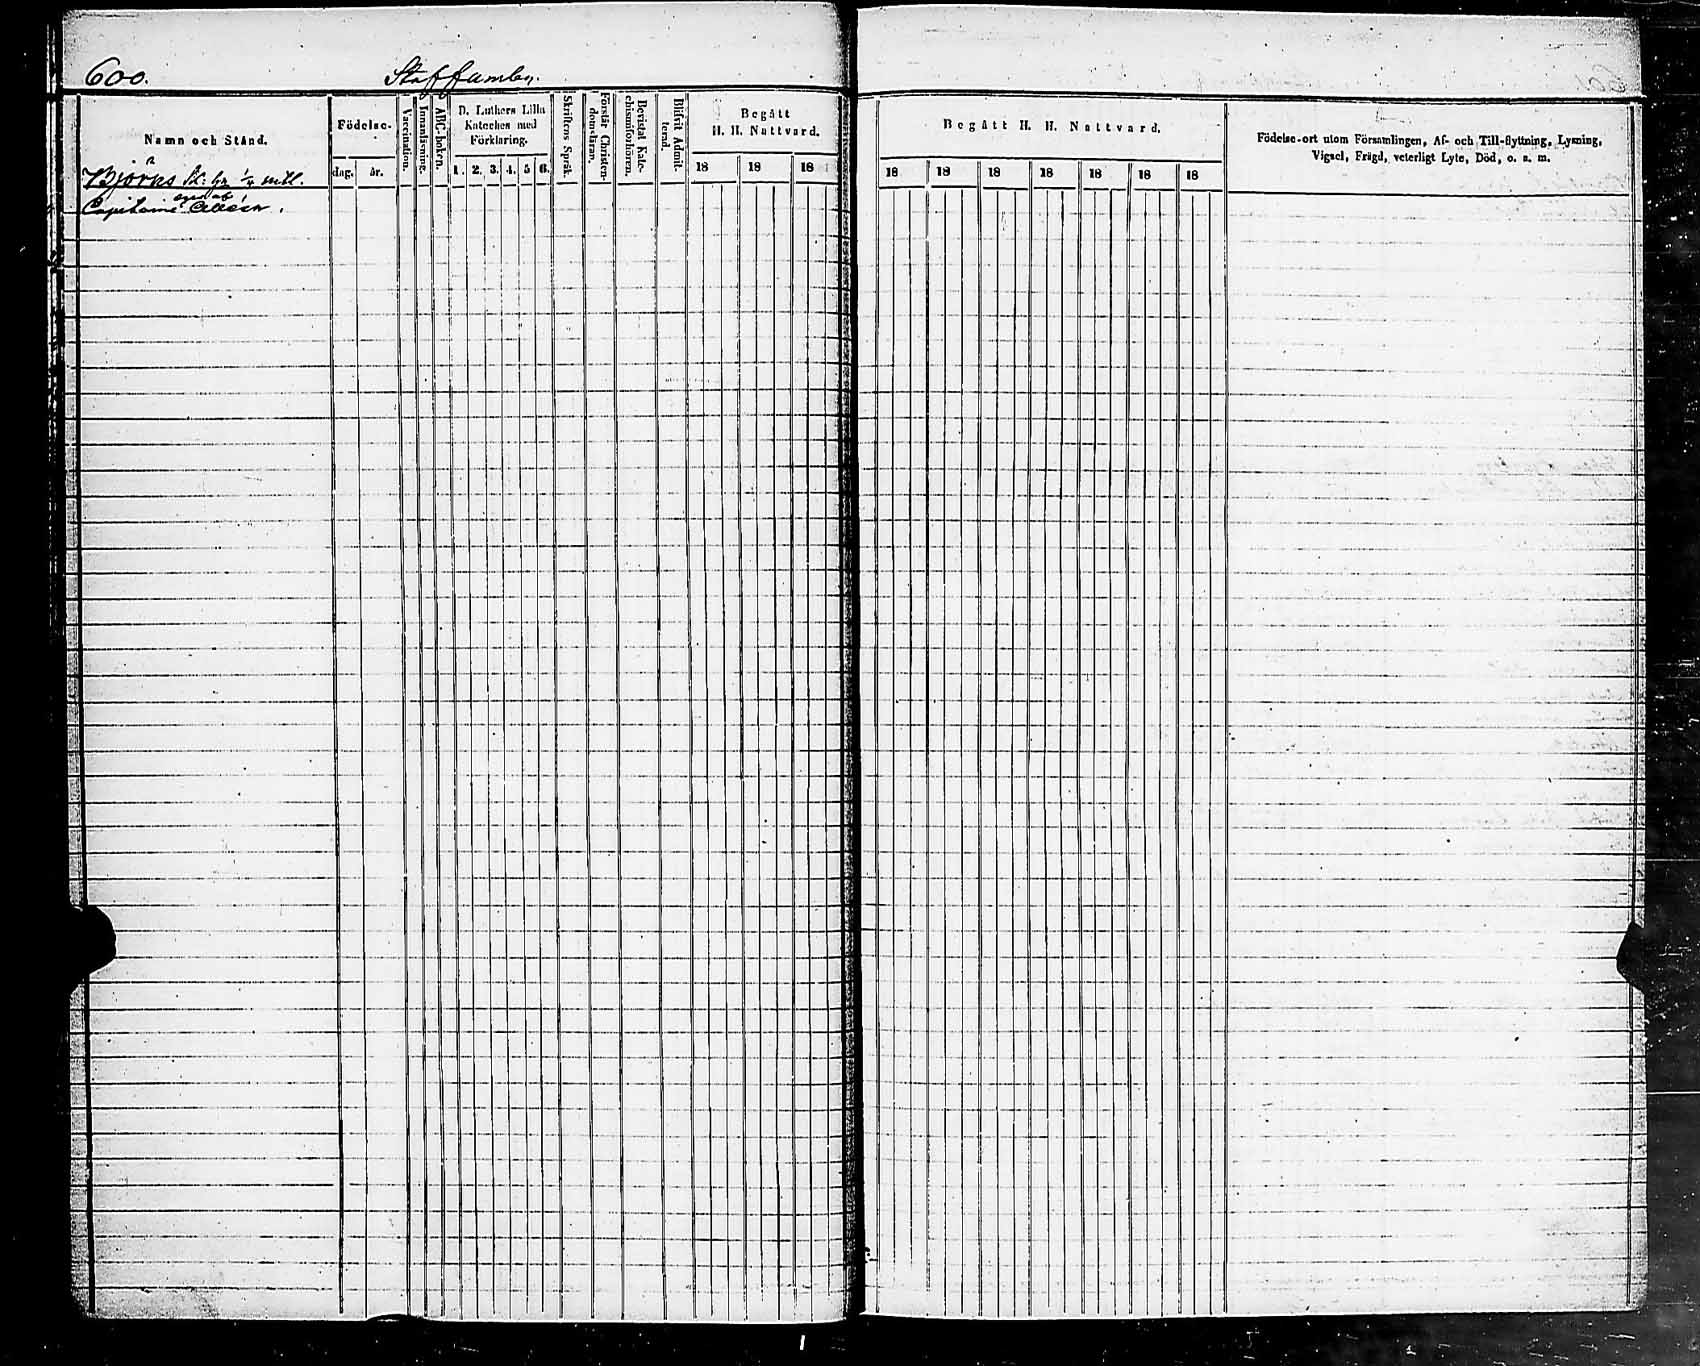 600. Staffansby.
Namn och Stånd.
Födelse-
dag. år.
Vaccination.
Innanläsning.
ABC-boken.
D. Luthers Lilla
Kateches med
Förklaring.
1. 2. 3. 4. 5 6.
Skriftens Språk.
Förstår Christen-
domsläran.
Bevistat Kate-
chismiförhören.
Blifvit Admit-
terad.
Begått
H. H. Nattvard.
18 18 18
Björns Sk: fr 1/4 mtl.
Capitaine
Begått H. H. Nattvard.
18 18 18 18 18 18 18
Födelse-ort utom Församlingen, Af- och Till-flyttning, Lysning,
Vigsel, Frägd, veterligt Lyte, Död, o. s. m.